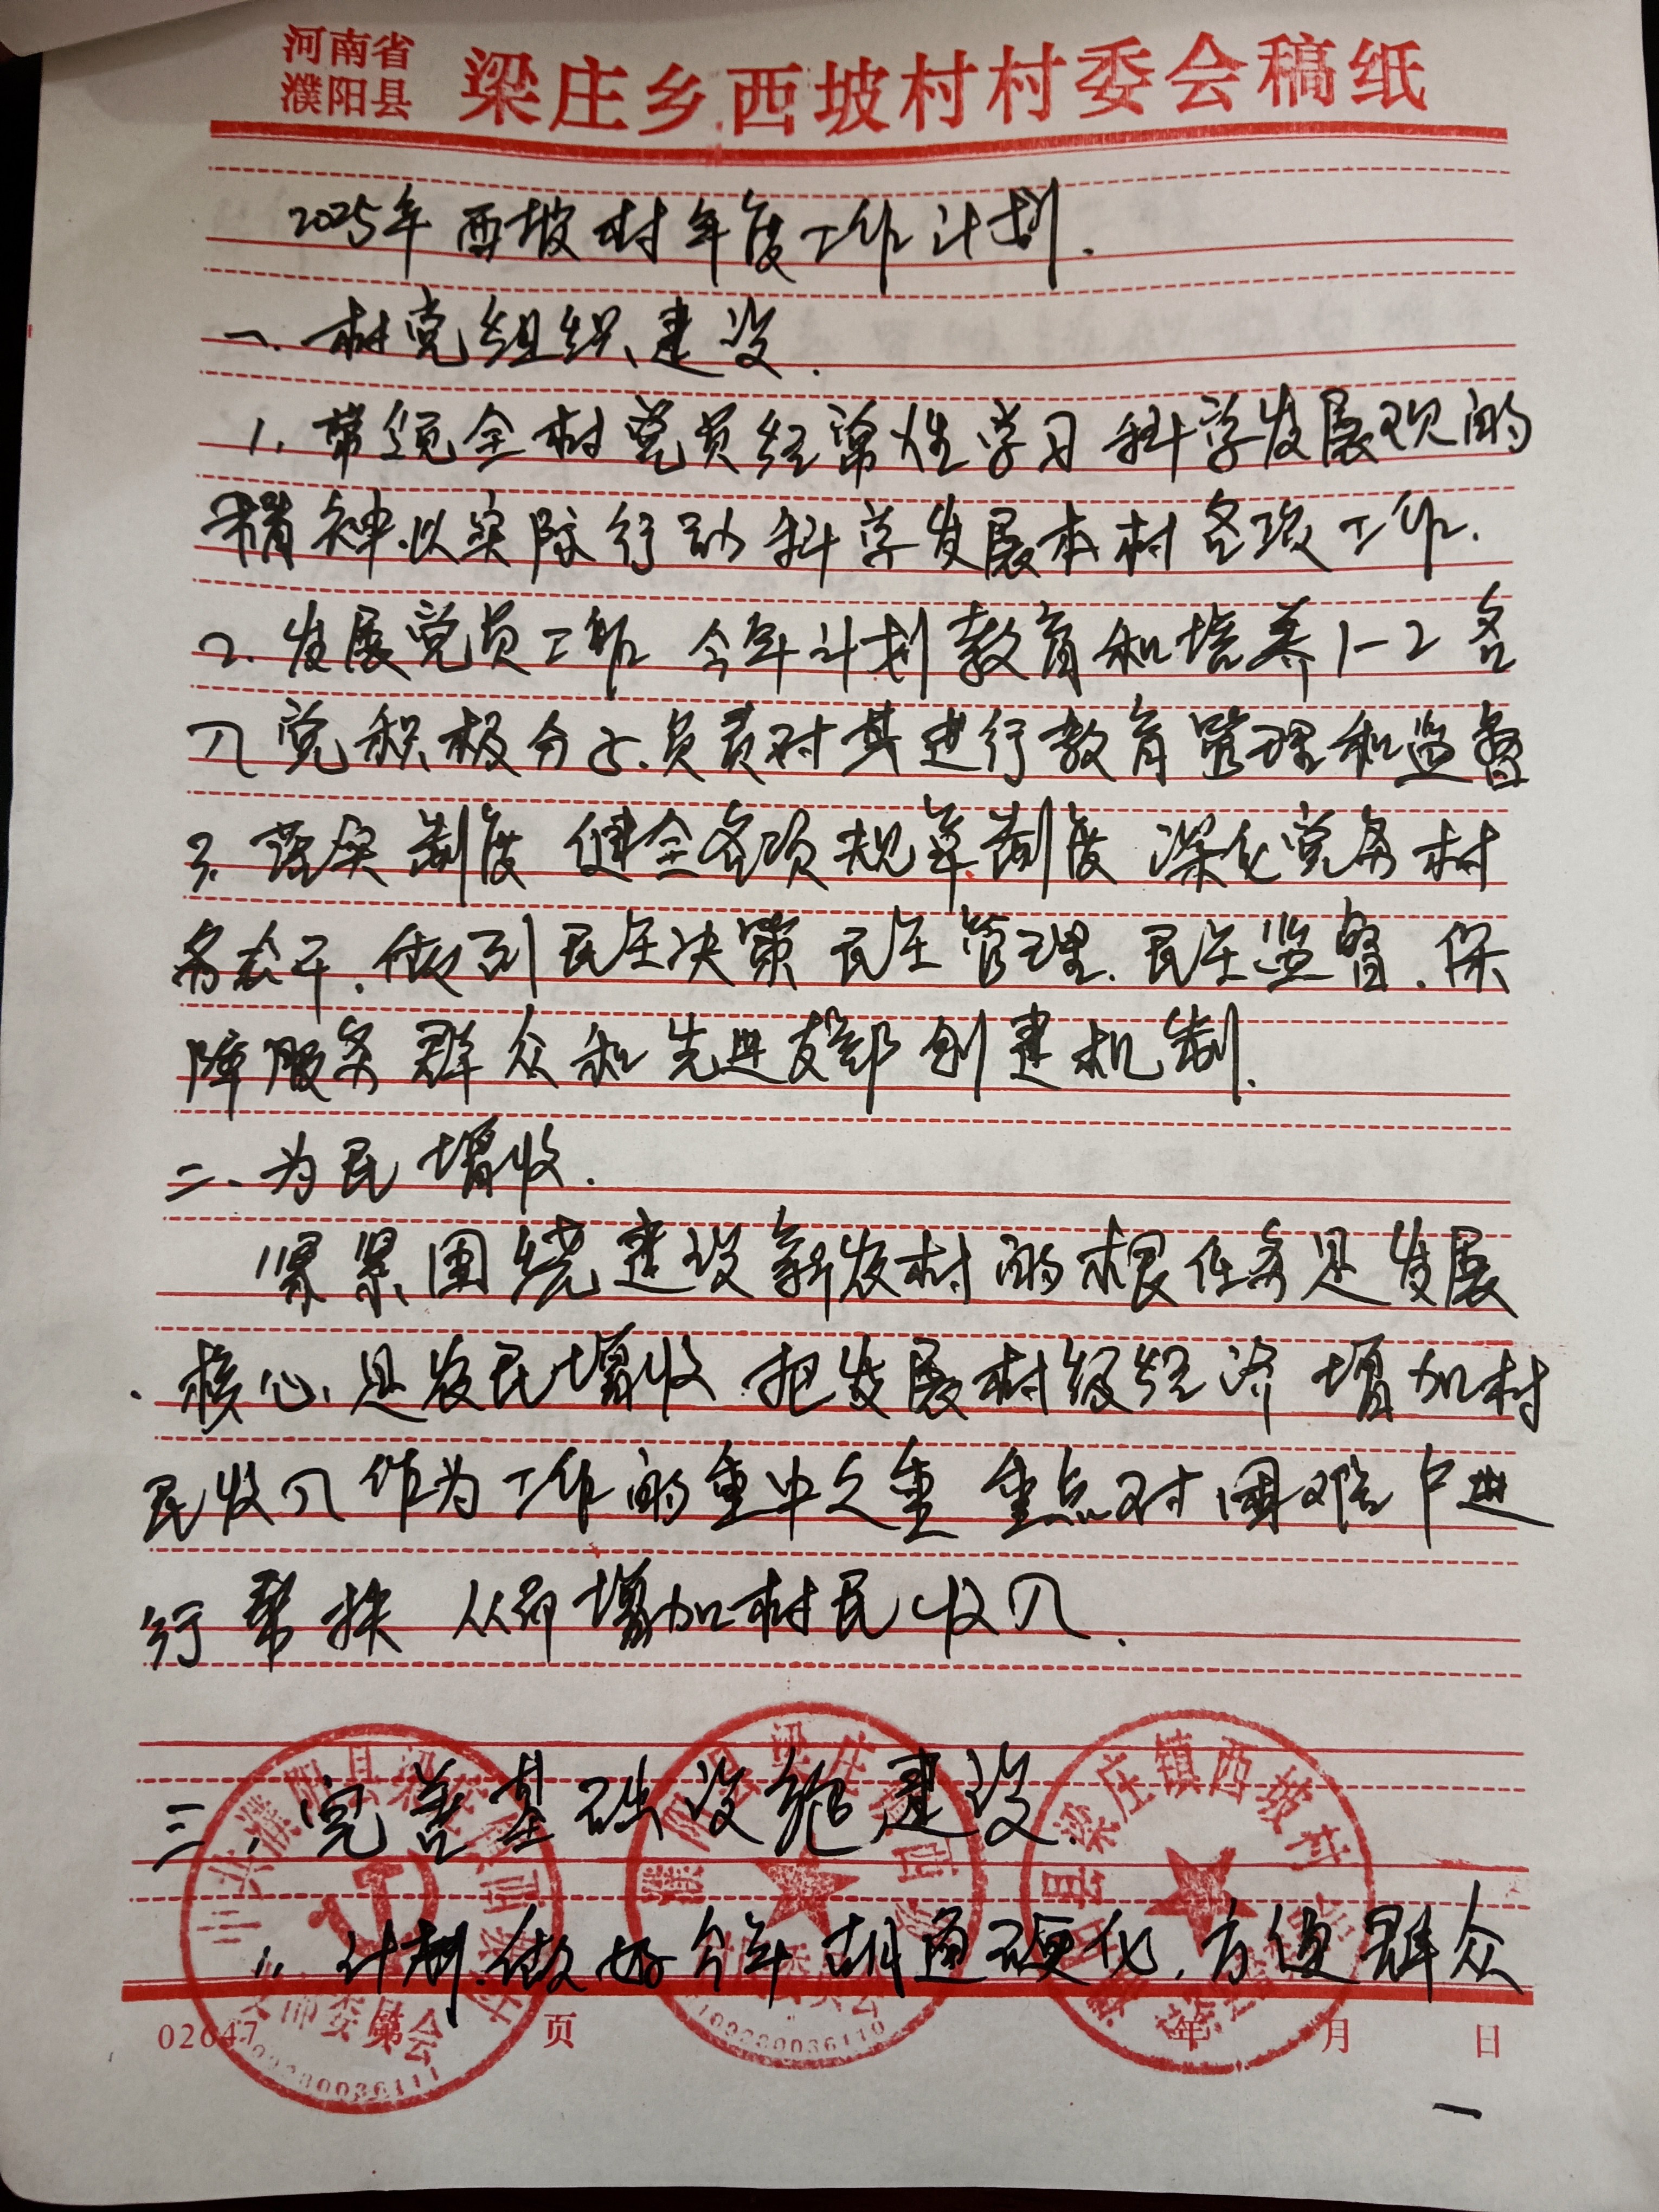 河南省
濮阳县
梁庄乡西坡村村委会稿纸
2025年西坡村年度工作计划.
一.村党组织建设.
1.带领全村党员经常性学习科学发展观的
精神.以实际行动科学发展本村各项工作.
2.发展党员工作 今年计划教育和培养1-2名
入党积极分子.负责对其进行教育管理和监督
3.落实制度 健全各项规章制度 深化党务村
务公开.做到民主决策 民主管理.民主监督.保
障服务群众和先进支部创建机制.
二、为民增收.
紧紧围绕建设新农村的根任务是发展
、核心,是农民增收 把发展村级经济 增加村
民收入作为工作的重中之重 重点对困难户进
行帮扶 从而增加村民收入.
三.完善基础设施建设.
1.计划.做好今年胡同硬化.方便群众
02647 第 页 年 月 日
一